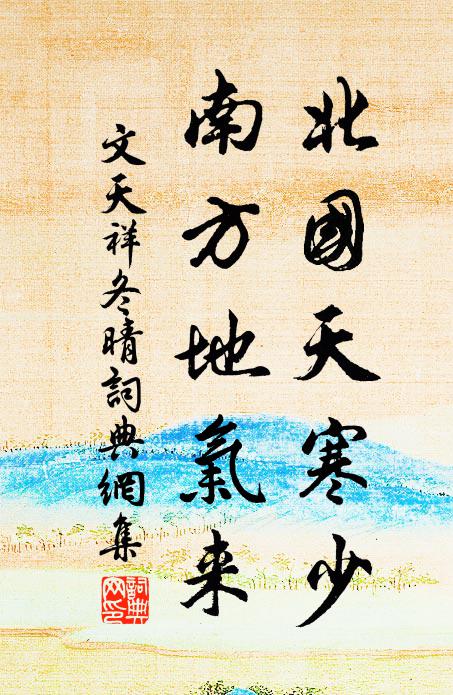 北國天寒少
南方地氣来
文天祥冬晴詞典網集
詞典網印